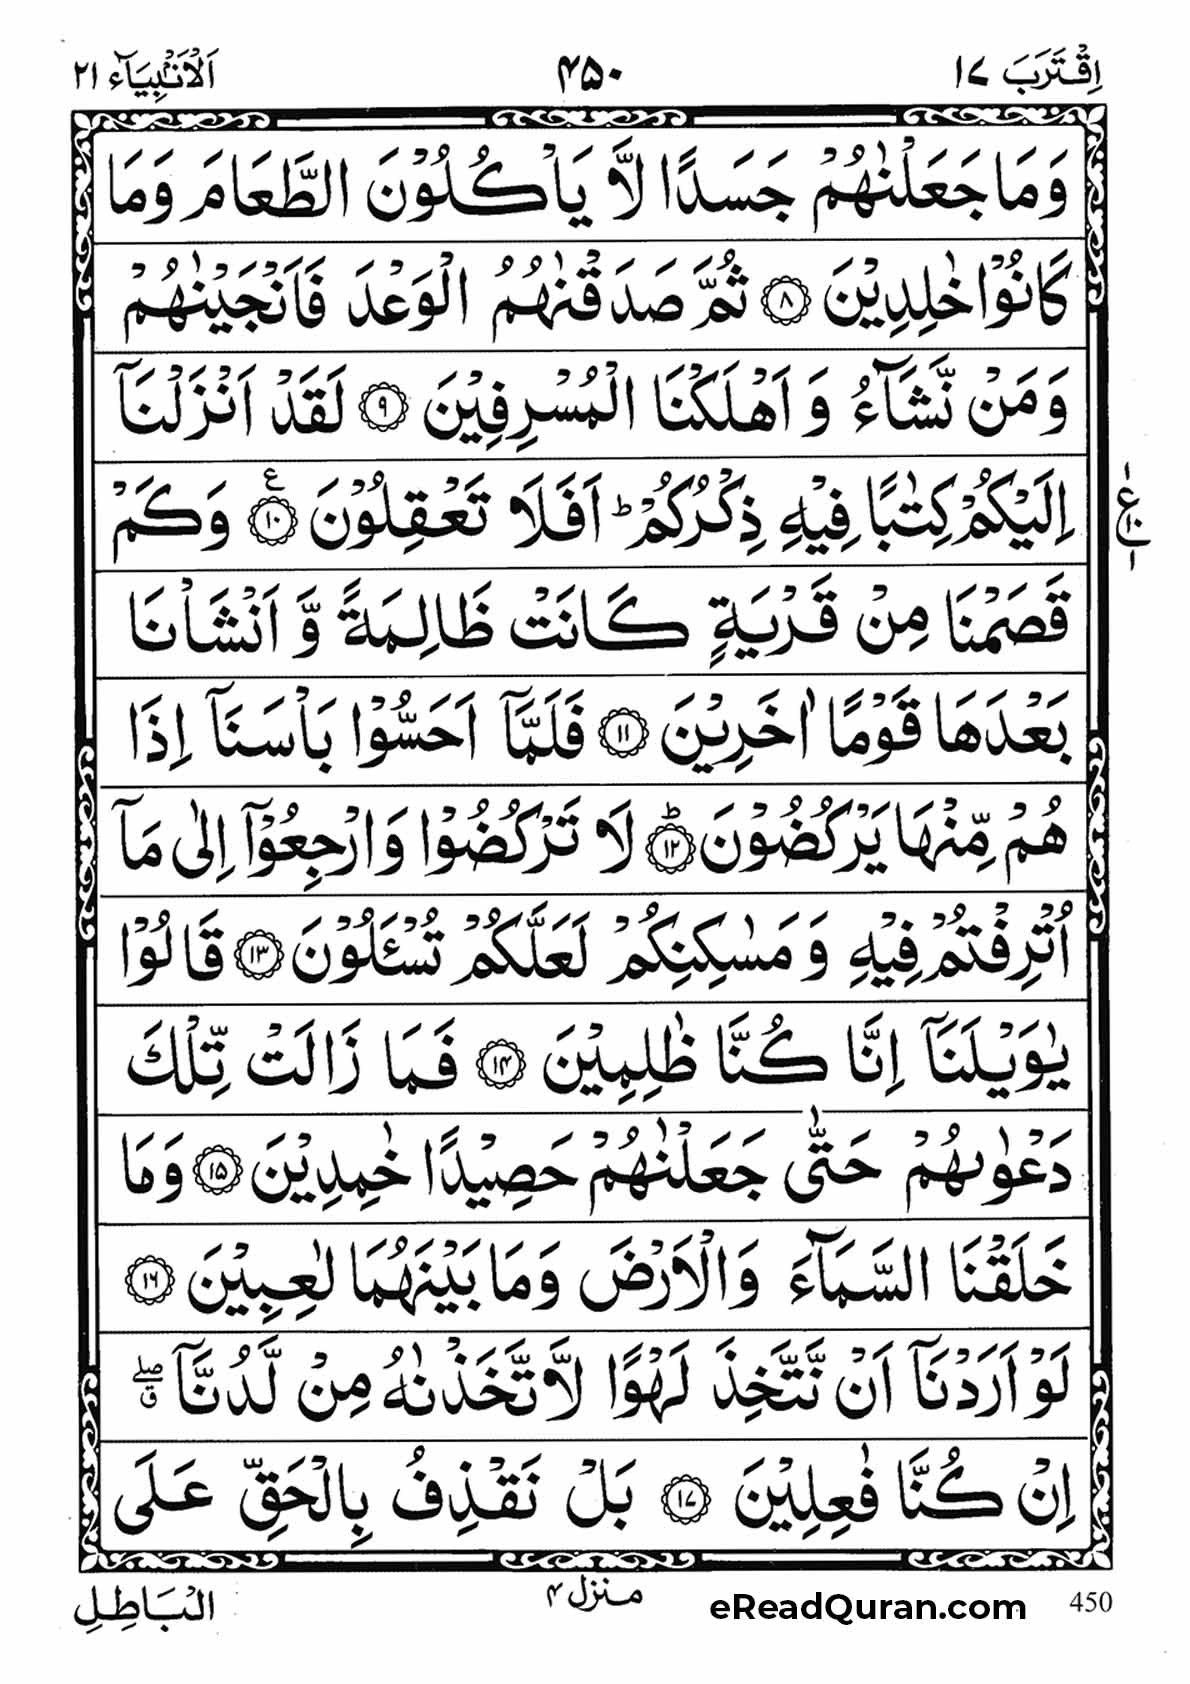 اِقْتَرَبَ ١٧
٤٥٠
اَلْاَنْۢبِيَآء ٢١
وَمَا جَعَلْنٰهُمْ جَسَدًا لَّا يَاْكُلُوْنَ الطَّعَامَ وَمَا
كَانُوْا خٰلِدِيْنَ ٨ ثُمَّ صَدَقْنٰهُمُ الْوَعْدَ فَاَنْجَيْنٰهُمْ
وَمَنْ نَّشَآءُ وَ اَهْلَكْنَا الْمُسْرِفِيْنَ ٩ لَقَدْ اَنْزَلْنَآ
اِلَيْكُمْ كِتٰبًا فِيْهِ ذِكْرُكُمْ ؕ اَفَلَا تَعْقِلُوْنَ ١٠ ع وَكَمْ
قَصَمْنَا مِنْ قَرْيَةٍ كَانَتْ ظَالِمَةً وَّ اَنْشَاْنَا
بَعْدَهَا قَوْمًا اٰخَرِيْنَ ١١ فَلَمَّآ اَحَسُّوْا بَاْسَنَآ اِذَا
هُمْ مِّنْهَا يَرْكُضُوْنَ ؕ ١٢ لَا تَرْكُضُوْا وَارْجِعُوْٓا اِلٰى مَآ
اُتْرِفْتُمْ فِيْهِ وَ مَسٰكِنِكُمْ لَعَلَّكُمْ تُسْـَٔلُوْنَ ١٣ قَالُوْا
يٰوَيْلَنَآ اِنَّا كُنَّا ظٰلِمِيْنَ ١٤ فَمَا زَالَتْ تِّلْكَ
دَعْوٰىهُمْ حَتّٰى جَعَلْنٰهُمْ حَصِيْدًا خٰمِدِيْنَ ١٥ وَمَا
خَلَقْنَا السَّمَآءَ وَالْاَرْضَ وَمَا بَيْنَهُمَا لٰعِبِيْنَ ١٦
لَوْ اَرَدْنَآ اَنْ نَّتَّخِذَ لَهْوًا لَّاتَّخَذْنٰهُ مِنْ لَّدُنَّآ ۖ ق
اِنْ كُنَّا فٰعِلِيْنَ ١٧ بَلْ نَقْذِفُ بِالْحَقِّ عَلَى
١ ع ١٠ ١
الْبَاطِلِ
منزل ٤
eReadQuran.com
450